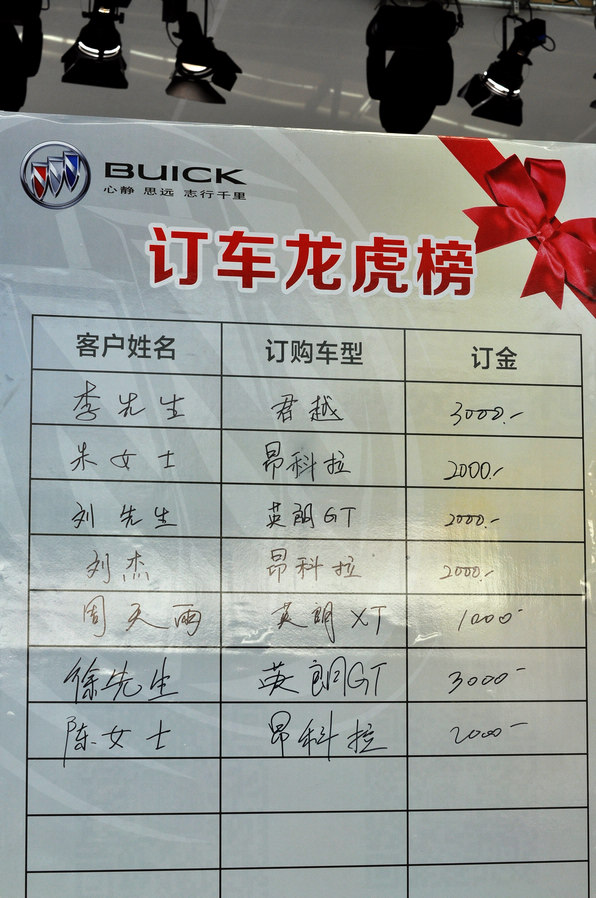 BUICK
心静 思远 志行千里
订车龙虎榜
客户姓名 订购车型 订金
李先生 君越 3000.-
朱女士 昂科拉 2000.-
刘先生 英朗GT 2000.-
刘杰 昂科拉 2000.-
周天雨 英朗XT 1000-
徐先生 英朗GT 3000-
陈女士 昂科拉 2000-